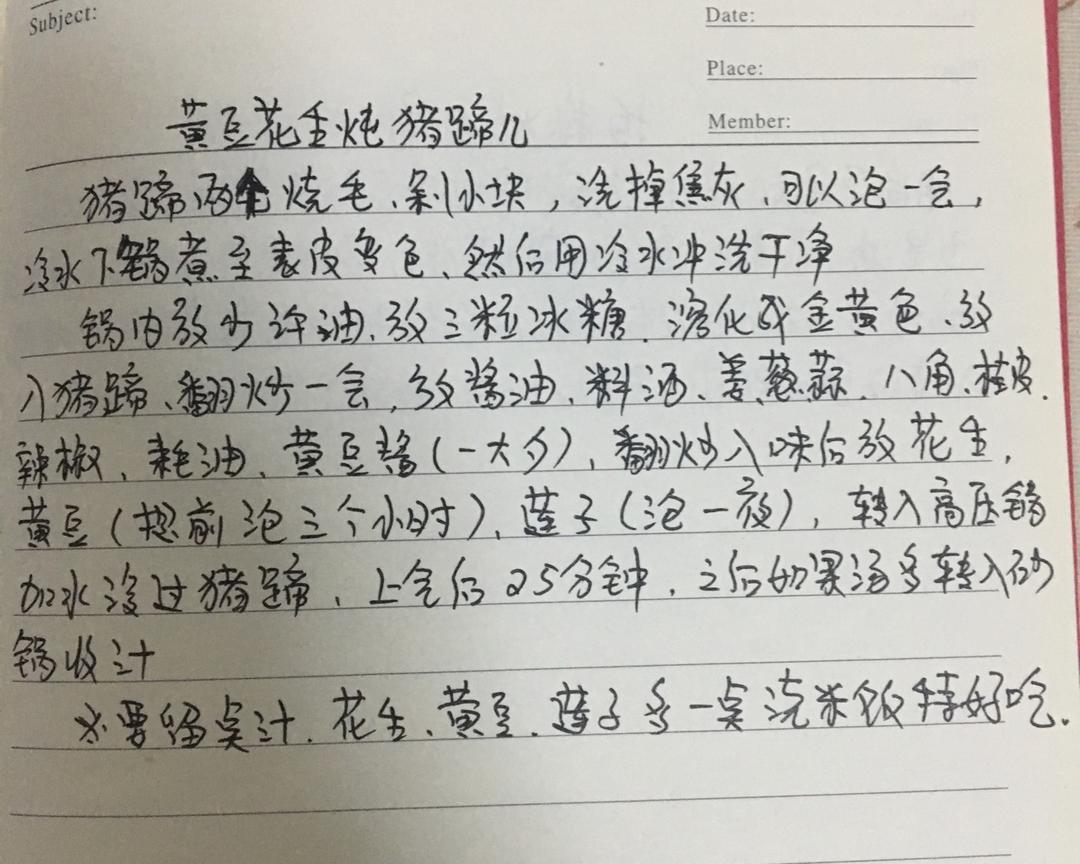 Subject:
Date:
Place:
Member:
黄豆花生炖猪蹄儿
猪蹄两个烧毛、剁小块，洗掉焦灰、可以泡一会，
冷水下锅煮至表皮变色、然后用冷水冲洗干净
锅内放少许油、放三粒冰糖、溶化成金黄色、放
入猪蹄、翻炒一会、放酱油、料酒、姜葱蒜、八角、桂皮、
辣椒、耗油、黄豆酱(一大勺)、翻炒入味后放花生，
黄豆(提前泡三个小时)、莲子(泡一夜)，转入高压锅
加水没过猪蹄、上气后25分钟、之后如果汤多转入砂
锅收汁
※要留点汁、花生、黄豆、莲子多一点浇米饭特好吃.